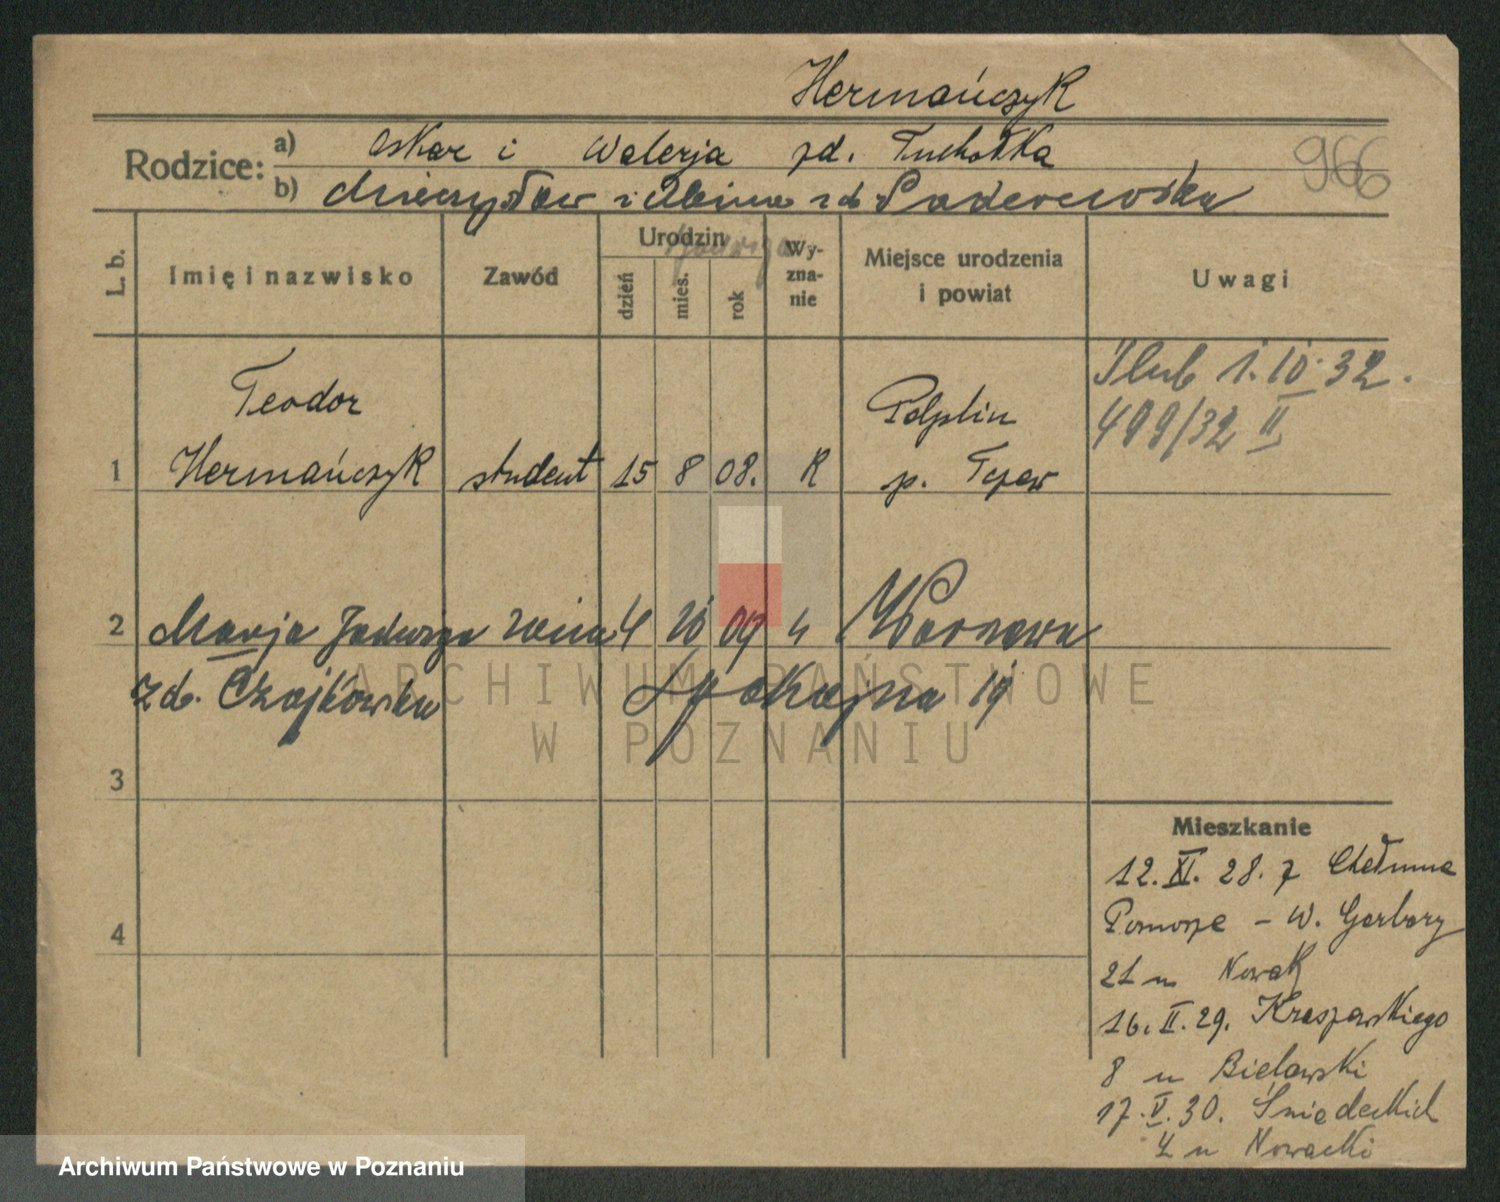 Hermańczyk
Rodzice: a) Oskar i Walerja zd. Tuchołka
966
b) Mieczysław i Albina zd. Paderewska
L. b.
Imię i nazwisko
Zawód
Urodzin
dzień
mies.
rok
Wy-
zna-
nie
Miejsce urodzenia
i powiat
Uwagi
Jadwiga
Ślub 1.IV.32.
499/32 II
Teodor
Pelplin
1 Hermańczyk student 15 8 08. R p. Tczew
2 Marja Jadwiga żona 4 10 09 Warszawa
zd. Czajkowska Spokojna 19
3
4
Mieszkanie
12.XI.28. z Chełmna
Pomorze - W. Garbary
21 u Nowak
16.II.29. Kraszewskiego
8 u Bielawski
17.V.30. Śniadeckich
4 u Nowacki
ARCHIWUM PAŃSTWOWE
W POZNANIU
Archiwum Państwowe w Poznaniu